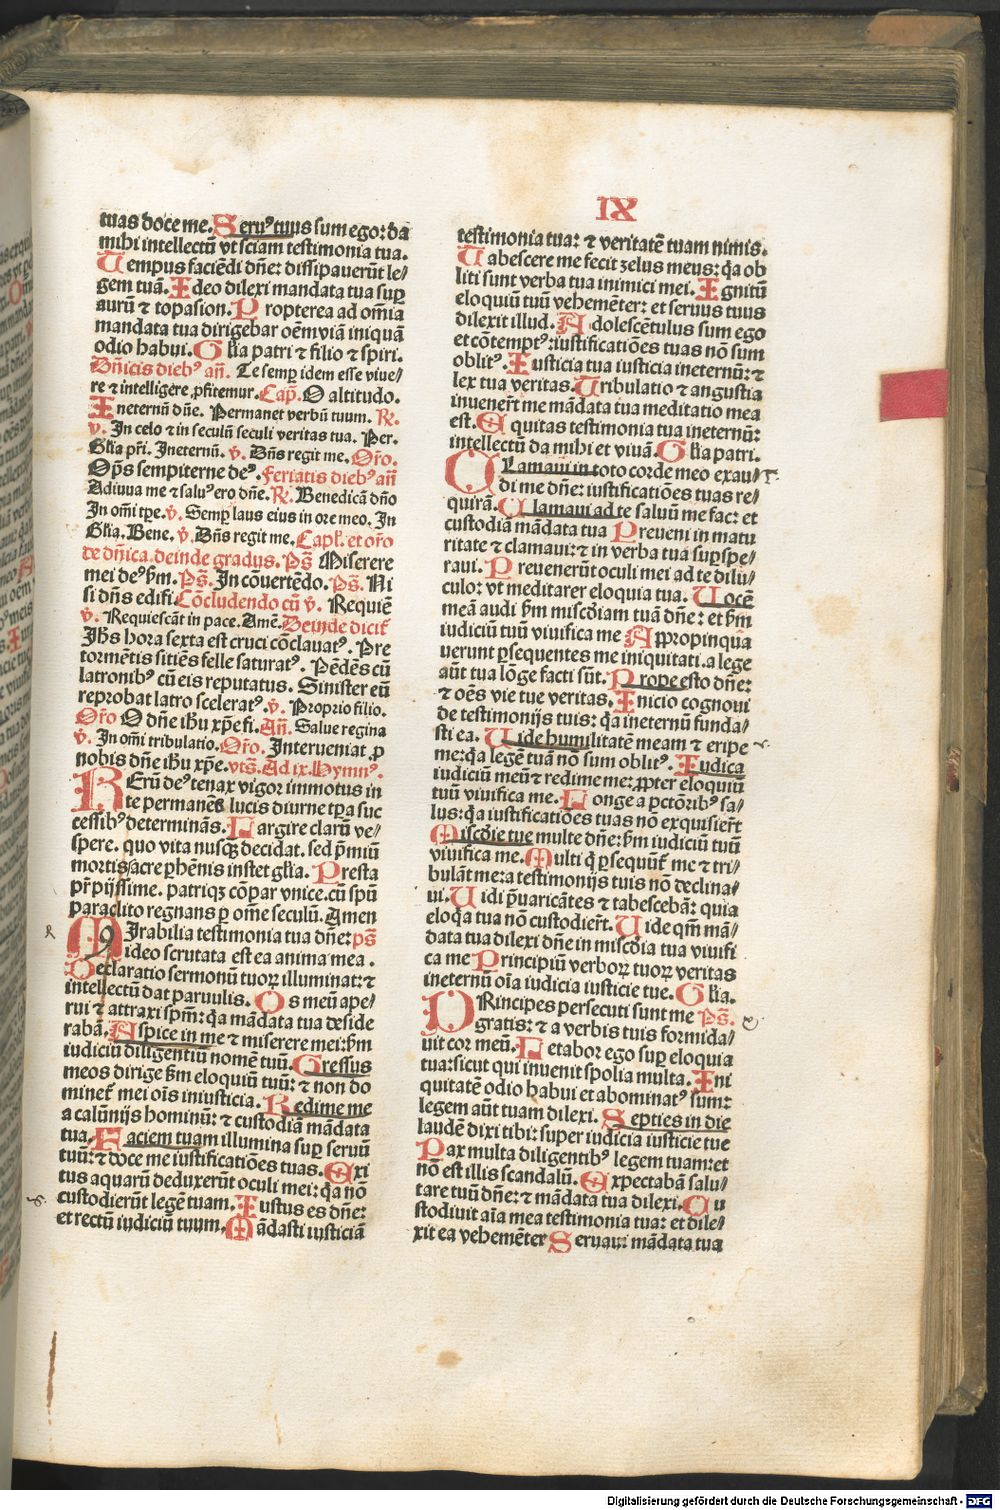 IX
tuas doce me. Seruꝰ tuus sum ego: da
mihi intellectū vt sciam testimonia tua.
Tempus faciēdi dn̄e: dissipauerūt le/
gem tuā. Ideo dilexi mandata tua suꝑ
aurū ⁊ topasion. Propterea ad om̄ia
mandata tua dirigebar oēm viā iniquā
odio habui. Gl̄ia patri ⁊ filio ⁊ spiri.
Dn̄icis diebꝰ an̄. Te semꝑ idem esse viue/
re ⁊ intelligere ꝓfitemur. Cap̄. O altitudo.
Ineternū dn̄e. Permanet verbū tuum. R̄.
v̄. In celo ⁊ in seculū seculi veritas tua. Per.
Gl̄ia pr̄i. Ineternū. v̄. Dn̄s regit me. Or̄o.
Op̄s sempiterne deꝰ. Feriatis diebꝰ an̄
Adiuua me ⁊ saluꝰ ero dn̄e. R̄. Benedicā dn̄o
In om̄i tp̄e. v̄. Semꝑ laus eius in ore meo. In
Gl̄ia. Bene. v̄. Dn̄s regit me. Capl̄. et or̄o
de dn̄ica. deinde gradus. Ps̄ Miserere
mei deꝰ ẜm. Ps̄. In cōuertēdo. Ps̄. Ni
si dn̄s edifi Cōcludendo cū v̄. Requiē
v̄. Requiescāt in pace. Amē. Deinde dicit̄
Ih̄s hora sexta est cruci cōclauatꝰ. Pre
tormētis sitiēs felle saturatꝰ. Pēdēs cū
latronibꝰ cū eis reputatus. Sinister eū
reprobat latro sceleratꝰ. v̄. Proprio filio.
Or̄o O dn̄e ih̄u xp̄e fi. An̄. Salue regina
v̄. In om̄i tribulatio. Or̄o. Interueniat ꝓ
nobis dn̄e ih̄u xp̄e. vts̄. Ad ix. Hymnꝰ.
REruꝫ deꝰ tenax vigor immotus in
te permanēs lucis diurne tp̄a suc
cessibꝰ determinās. Largire clarū ve/
spere. quo vita nusqꝫ decidat. sed p̄miū
mortis sacre phēnis instet gl̄ia. Presta
pr̄ pijssime. patriqꝫ cōpar vnice. cū spū
paraclito regnans ꝑ om̄e seculū. Amen
MIrabilia testimonia tua dn̄e: ps̄
ideo scrutata est ea anima mea.
Declaratio sermonū tuoꝝ illuminat: ⁊
intellectū dat paruulis. Os meū ape/
rui ⁊ attraxi spm̄: q̄a mādata tua deside
rabā. Aspice in me ⁊ miserere mei: ẜm
iudiciū diligentiū nomē tuū. Gressus
meos dirige ẜm eloquiū tuū: ⁊ non do
minet̄ mei oīs iniusticia. Redime me
a calūnijs hominū: ⁊ custodiā mādata
tua. Faciem tuam illumina suꝑ seruū
tuū: ⁊ doce me iustificatiōes tuas. Exi
tus aquarū deduxerūt oculi mei: q̄a nō
custodierūt legē tuam. Iustus es dn̄e:
et rectū iudiciū tuum. Mādasti iusticiā
testimonia tua: ⁊ veritatē tuam nimis.
Tabescere me fecit zelus meus: q̄a ob
liti sunt verba tua inimici mei. Ignitū
eloquiū tuū vehemēter: et seruus tuus
dilexit illud. Adolescētulus sum ego
et cōtemptꝰ: iustificatiōes tuas nō sum
oblitꝰ. Iusticia tua iusticia ineternū: ⁊
lex tua veritas. Tribulatio ⁊ angustia
inuener̄t me mādata tua meditatio mea
est. Equitas testimonia tua ineternū:
intellectū da mihi et viuā. Gl̄ia patri.
CLamaui in toto corde meo exau/
di me dn̄e: iustificatiōes tuas re/
quirā. Clamaui ad te saluū me fac: et
custodiā mādata tua Preueni in matu
ritate ⁊ clamaui: ⁊ in verba tua suꝑspe/
raui. Preuenerūt oculi mei ad te dilu/
culo: vt meditarer eloquia tua. Uocē
meā audi ẜm mīscdiam tuā dn̄e: et ẜm
iudiciū tuū viuifica me Appropinqua
uerunt ꝑsequentes me iniquitati. a lege
aūt tua lōge facti sūt. Prope esto dn̄e:
⁊ oēs vie tue veritas. Inicio cognoui
de testimonijs tuis: q̄a ineternū funda/
sti ea. Uide humilitatēm meam ⁊ eripe
me: q̄a legē tuā nō sum oblitꝰ. Iudica
iudiciū meū ⁊ redime me: ꝓpter eloquiū
tuū viuifica me. Longe a pctōribꝰ sa/
lus: q̄a iustificatiōes tuas nō exquisier̄t
Mīscdie tue multe dn̄e: ẜm iudiciū tuū
viuifica me. Multi q̄ ꝑsequūt̄ me ⁊ tri/
bulāt me: a testimonijs tuis nō declina/
ui. Uidi p̄uaricātes ⁊ tabescebā: quia
eloq̄a tua nō custodier̄t. Uide qm̄ mā/
data tua dilexi dn̄e in mīscdia tua viuifi
ca me Principiū verboꝝ tuoꝝ veritas
ineternū oīa iudicia iusticie tue. Gl̄ia.
PRincipes persecuti sunt me Ps̄.
gratis: ⁊ a verbis tuis formida/
uit cor meū. Letabor ego suꝑ eloquia
tua: sicut qui inuenit spolia multa. Ini
quitatē odio habui et abominatꝰ sum:
legem aūt tuam dilexi. Septies in die
laudē dixi tibi: super iudicia iusticie tue
Pax multa diligentibꝰ legem tuam: et
nō est illis scandalū. Expectabā salu/
tare tuū dn̄e: ⁊ mādata tua dilexi. Cu
stodiuit aīa mea testimonia tua: et dile/
xit ea vehemēter Seruaui mādata tua
Digitalisierung gefördert durch die Deutsche Forschungsgemeinschaft - DFG